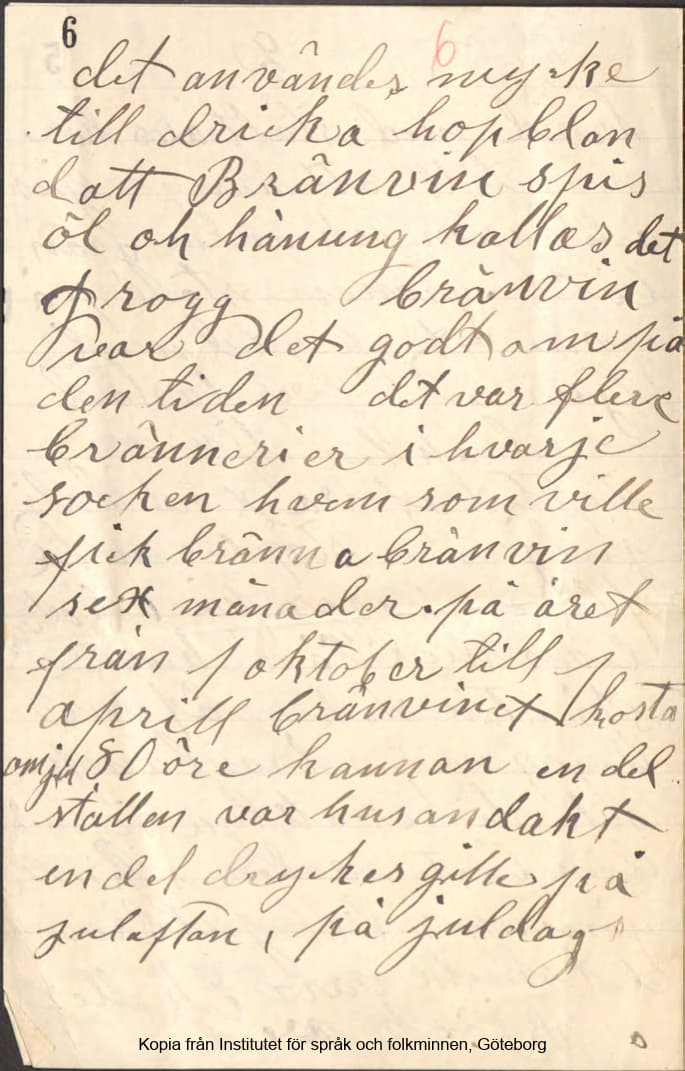 6
6
det användes mycke
till dricka hopblan
datt Bränvin spis
öl och hånung kallas det
Grogg bränvin
var det godt om på
den tiden det var flere
brännerier i hvarje
socken hvem som ville
fick bränna bränvin
sex månader på året
från 1 oktober till 1
aprill bränvinet kosta
80 öre kannan en del
ställen var husandakt
en del dryckesgille på
julaftan, på juldags
Kopia från Institutet för språk och folkminnen, Göteborg